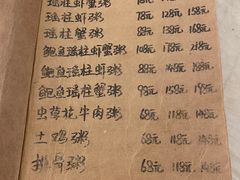 瑶柱蟹粥
瑶柱虾粥 78元 128元 158元
瑶柱蟹粥 78元 118元 158元
鲍鱼瑶柱虾蟹粥 108元 178元 218元
鲍鱼瑶柱虾粥 88元 138元 168元
鲍鱼瑶柱蟹粥 98元 158元 198元
虫草花牛肉粥 68元 118元 148元
土鸡粥 68元 118元 148元
排骨粥 68元 118元 148元